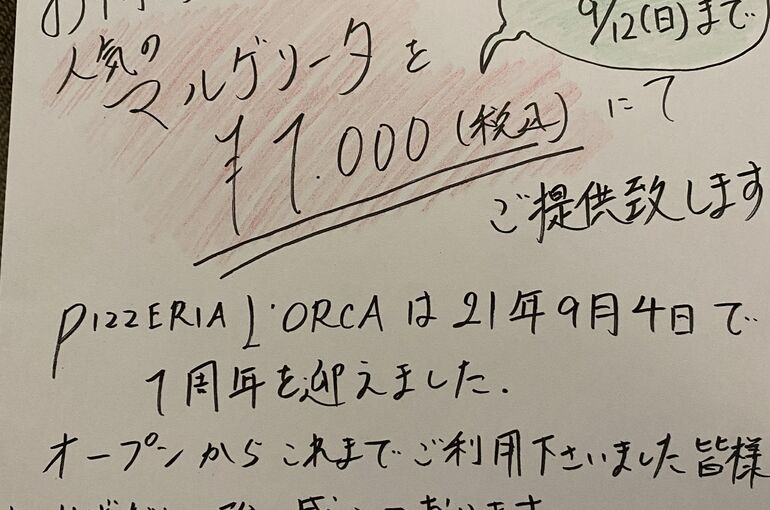 9/12(日)まで
人気の
マルゲリータを
¥1.000(税込)にて
ご提供致します
PIZZERIA L'ORCAは21年9月4日で
1周年を迎えました.
オープンからこれまでご利用下さいました皆様